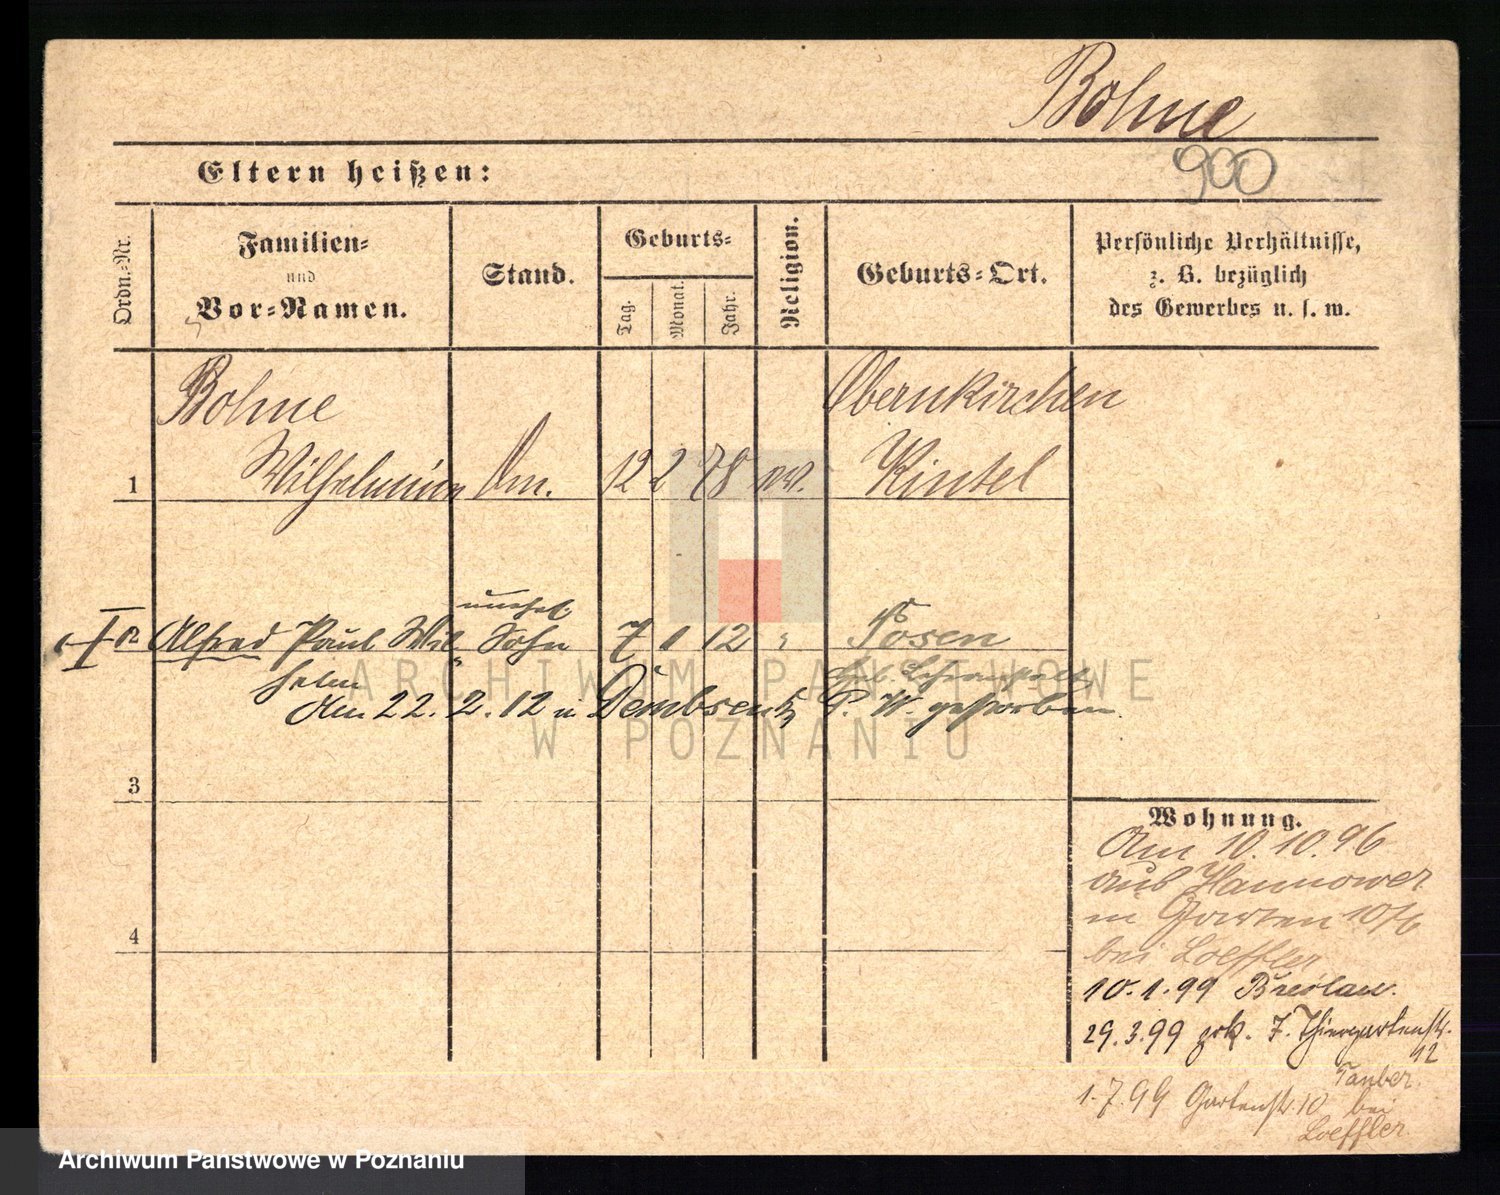 Bohne
900
Eltern heißen:
Ordn.-Nr.
Familien-
und
Vor-Namen.
Stand.
Geburts-
Tag.
Monat.
Jahr.
Religion.
Geburts-Ort.
Persönliche Verhältnisse,
z. B. bezüglich
des Gewerbes u. s. w.
Bohne
Obernkirchen
1 Wilhelmine 12 2 78 Rintel
unehel.
Alfred Paul Wil- Sohn 7 1 12 " Posen
helm
Am 22. 2. 12 in Dembsen gestorben
3
4
Wohnung.
Am 10.10.96
aus Hannower
in Garten 10
bei Loeffler
10.1.99 Breslau.
29.3.99 zrk. Z. Thiergartenstr.
12
Tauber.
1.7.99 Gartenstr. 10 bei
Loeffler
ARCHIWUM PAŃSTWOWE
W POZNANIU
Archiwum Państwowe w Poznaniu